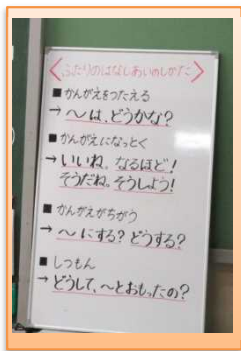 <ふたりのはなしあいのしかた>
■ かんがえをつたえる
→ 〜は、どうかな?
■ かんがえになっとく
→ いいね。なるほど!
そうだね。そうしよう!
■ かんがえがちがう
→ 〜にする? どうする?
■ しつもん
→ どうして、〜とおもったの?